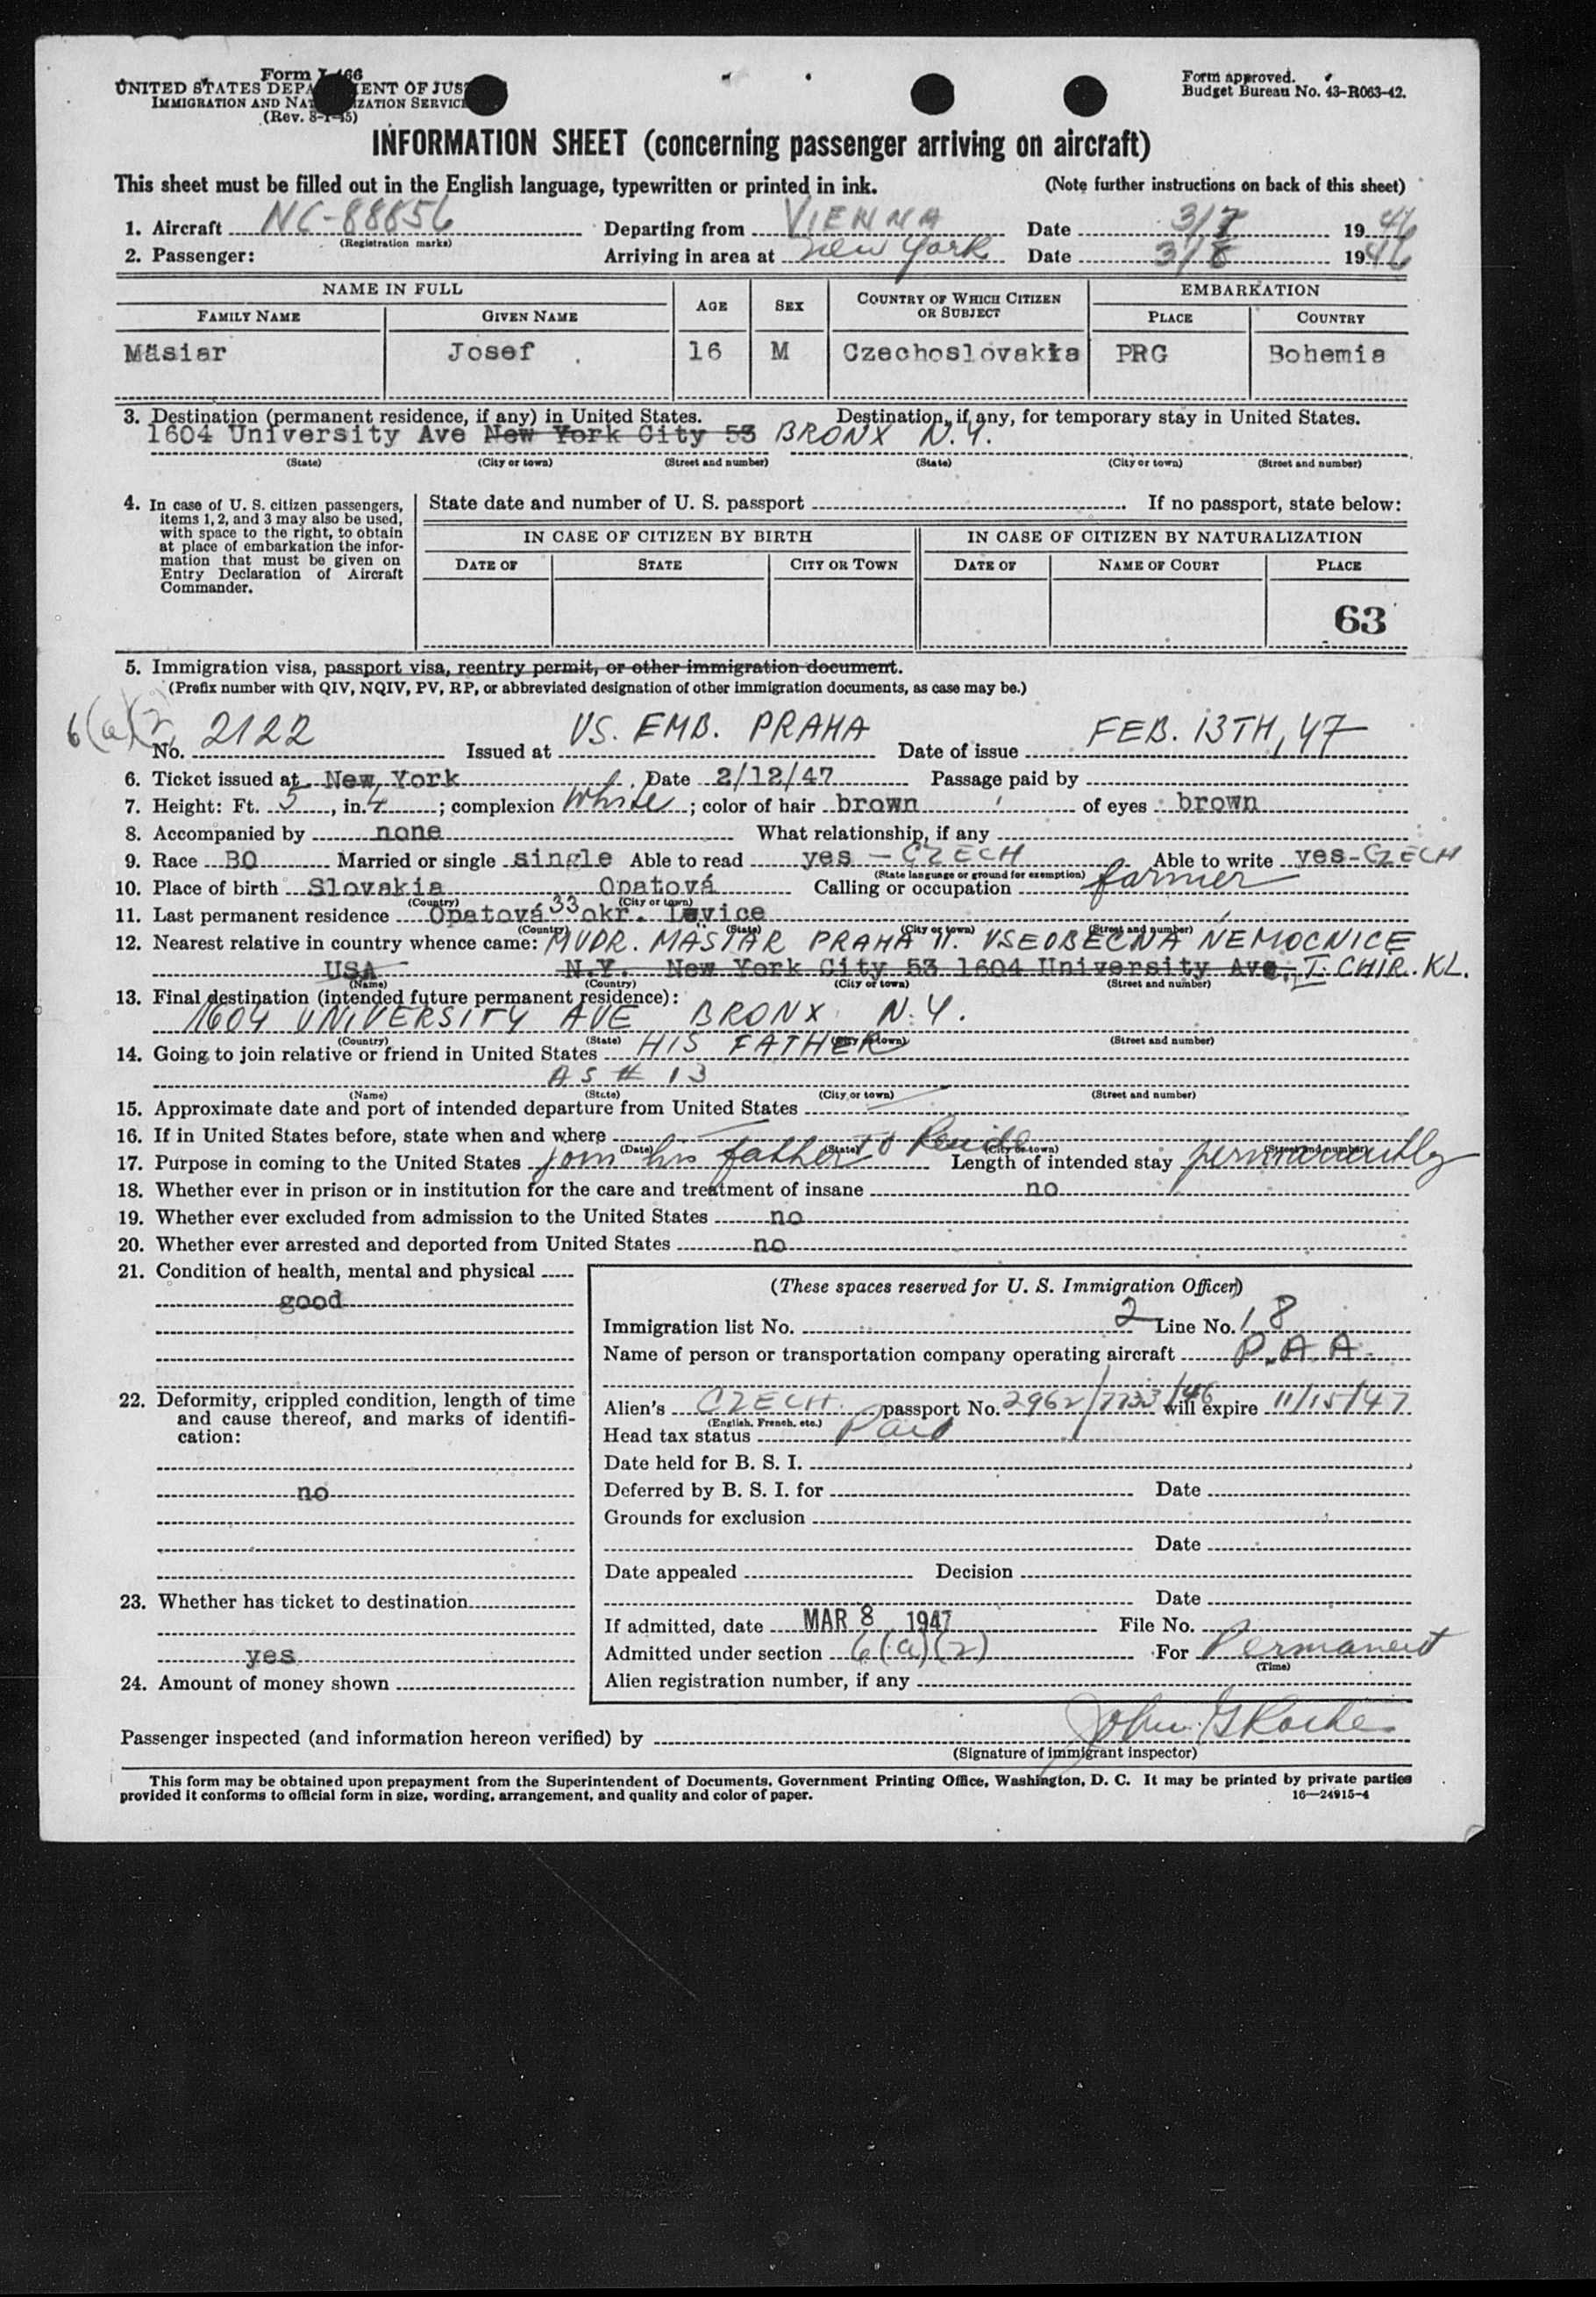 Form I-466
UNITED STATES DEPARTMENT OF JUSTICE
IMMIGRATION AND NATURALIZATION SERVICE
(Rev. 8-1-45)
Form approved.
Budget Bureau No. 43-R063-42.
INFORMATION SHEET (concerning passenger arriving on aircraft)
This sheet must be filled out in the English language, typewritten or printed in ink. (Note further instructions on back of this sheet)
1. Aircraft NC-88856 Departing from VIENNA Date 3/7 1946
(Registration marks)
2. Passenger: Arriving in area at New York Date 3/8 1946
NAME IN FULL AGE SEX COUNTRY OF WHICH CITIZEN OR SUBJECT EMBARKATION
FAMILY NAME GIVEN NAME PLACE COUNTRY
Mäsiar Josef 16 M Czechoslovakia PRG Bohemia
3. Destination (permanent residence, if any) in United States. Destination, if any, for temporary stay in United States.
1604 University Ave New York City 53 BRONX N.Y.
(State) (City or town) (Street and number) (State) (City or town) (Street and number)
4. In case of U. S. citizen passengers, items 1, 2, and 3 may also be used, with space to the right, to obtain at place of embarkation the information that must be given on Entry Declaration of Aircraft Commander.
State date and number of U. S. passport If no passport, state below:
IN CASE OF CITIZEN BY BIRTH IN CASE OF CITIZEN BY NATURALIZATION
DATE OF STATE CITY OR TOWN DATE OF NAME OF COURT PLACE
63
5. Immigration visa, passport visa, reentry permit, or other immigration document.
(Prefix number with QIV, NQIV, PV, RP, or abbreviated designation of other immigration documents, as case may be.)
6(a)(2) No. 2122 Issued at US. EMB. PRAHA Date of issue FEB. 13TH, 47
6. Ticket issued at New York Date 2/12/47 Passage paid by
7. Height: Ft. 5, in. 4; complexion White; color of hair brown of eyes brown
8. Accompanied by none What relationship, if any
9. Race BO Married or single single Able to read yes - CZECH Able to write yes-CZECH
(State language or ground for exemption)
10. Place of birth Slovakia Opatová Calling or occupation farmer
(Country) (City or town)
11. Last permanent residence Opatová 33 okr. Levice
(Country) (State) (City or town) (Street and number)
12. Nearest relative in country whence came: MUDR. MÄSIAR PRAHA II. VSEOBECNÁ NEMOCNICE
USA N.Y. New York City 53 1604 University Ave. I. CHIR. KL.
(Name) (Country) (City or town) (Street and number)
13. Final destination (intended future permanent residence):
1604 UNIVERSITY AVE BRONX N.Y.
(Country) (State) (City or town) (Street and number)
14. Going to join relative or friend in United States HIS FATHER
AS # 13
(Name) (State) (City or town) (Street and number)
15. Approximate date and port of intended departure from United States
16. If in United States before, state when and where
(Date) (State) (City or town) (Street and number)
17. Purpose in coming to the United States join his father to Reside Length of intended stay permanently
18. Whether ever in prison or in institution for the care and treatment of insane no
19. Whether ever excluded from admission to the United States no
20. Whether ever arrested and deported from United States no
21. Condition of health, mental and physical
good
22. Deformity, crippled condition, length of time and cause thereof, and marks of identification:
no
23. Whether has ticket to destination
yes
24. Amount of money shown
(These spaces reserved for U. S. Immigration Officer)
Immigration list No. 2 Line No. 18
Name of person or transportation company operating aircraft P.A.A.
Alien's CZECH passport No. 2962/7733/46 will expire 11/15/47
(English, French, etc.)
Head tax status Paid
Date held for B. S. I.
Deferred by B. S. I. for Date
Grounds for exclusion
Date
Date appealed Decision
Date
If admitted, date MAR 8 1947 File No.
Admitted under section 6(a)(2) For Permanent
(Time)
Alien registration number, if any
Passenger inspected (and information hereon verified) by John G Roche
(Signature of immigrant inspector)
This form may be obtained upon prepayment from the Superintendent of Documents, Government Printing Office, Washington, D. C. It may be printed by private parties
provided it conforms to official form in size, wording, arrangement, and quality and color of paper. 16—24915-4